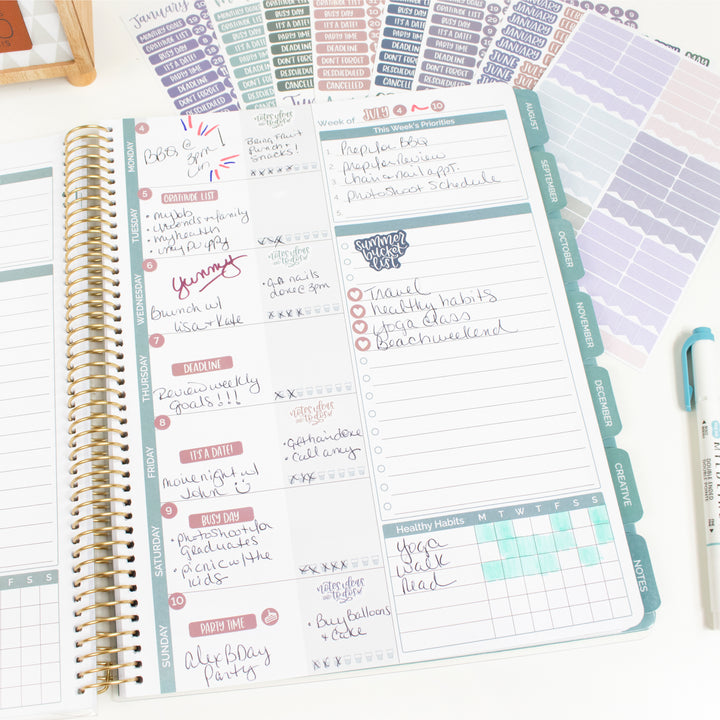 January
MONTHLY GOALS
GRATITUDE LIST
BUSY DAY
IT'S A DATE!
PARTY TIME
DEADLINE
DON'T FORGET
RESCHEDULED
CANCELLED
JANUARY
JUNE
MONDAY
4
BBQ @
3pm!
notes ideas
and to dos
Bring fruit
Punch &
Snacks!
TUESDAY
5
GRATITUDE LIST
• my job
• friends + family
• my health
• my puppy
WEDNESDAY
6
Yummy
Brunch w/
Lisa + Kate
notes ideas
and to dos
• get nails
done @ 3pm
THURSDAY
7
DEADLINE
Review weekly
Goals!!!
FRIDAY
8
IT'S A DATE!
Movie night w/
John
notes ideas
and to dos
• call amy
SATURDAY
9
BUSY DAY
• photoshoot for
graduates
• picnic w/ the
kids
SUNDAY
10
PARTY TIME
Alex BDay
Party
notes ideas
and to dos
• Buy Balloons
& Cake
Week of JULY 4 ~ 10
This Week's Priorities
1. Prep for BBQ
2. Prep for Review
3. hair & nail appt.
4. Photoshoot Schedule
5.
summer
bucket
list
Travel
healthy habits
yoga class
Beach weekend
Healthy Habits M T W T F S S
Yoga
Walk
Read
AUGUST
SEPTEMBER
OCTOBER
NOVEMBER
DECEMBER
CREATIVE
NOTES
F S S
DOUBLE ENDED